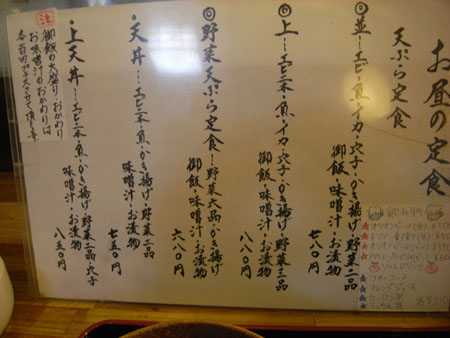 お昼の定食
天ぷら定食
◎並…エビ一本・魚・イカ・穴子・かき揚げ・野菜二品
御飯・味噌汁・お漬物
七八〇円
◎上…エビ二本・魚・イカ・穴子・かき揚げ・野菜三品
御飯・味噌汁・お漬物
八八〇円
◎野菜天ぷら定食…野菜六品・かき揚げ
御飯・味噌汁・お漬物
六八〇円
・天丼…エビ二本・魚・かき揚げ・野菜二品
味噌汁・お漬物
七五〇円
・上天丼…エビ三本・魚・かき揚げ・野菜二品・穴子
味噌汁・お漬物
八五〇円
注
御飯の大盛り・おかわり
お味噌汁のおかわりは
各百円プラスさせて頂きます
飲み物
ソフトドリンク
コカ・コーラ
オレンジジュース
ウーロン茶